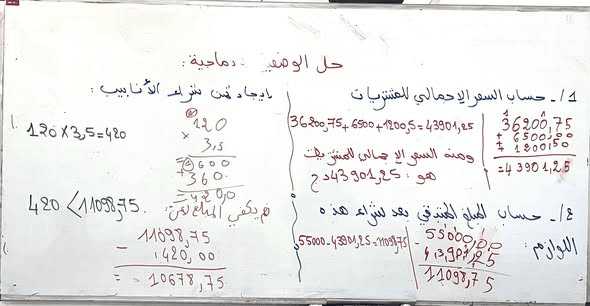 حل الوضعية دماجية:
1/- حساب السعر الإجمالي للمشتريات
36200,75+6500+1200,5=43901,25
36200,75
+ 6500,00
+ 1200,50
=43901,25
ومنه السعر الإجمالي للمشتريات
هو: 43901,25 دج
2/- حساب المبلغ المتبقي بعد شراء هذه
اللوازم:
55000-43901,25=11098,75
55000,00
- 43901,25
11098,75
إيجاد ثمن شراء الأنابيب:
120×3,5=420
120
×
3,5
=600
360.
=420,0
420<11098,75.
11098,75
- 420,00
= 10678,75